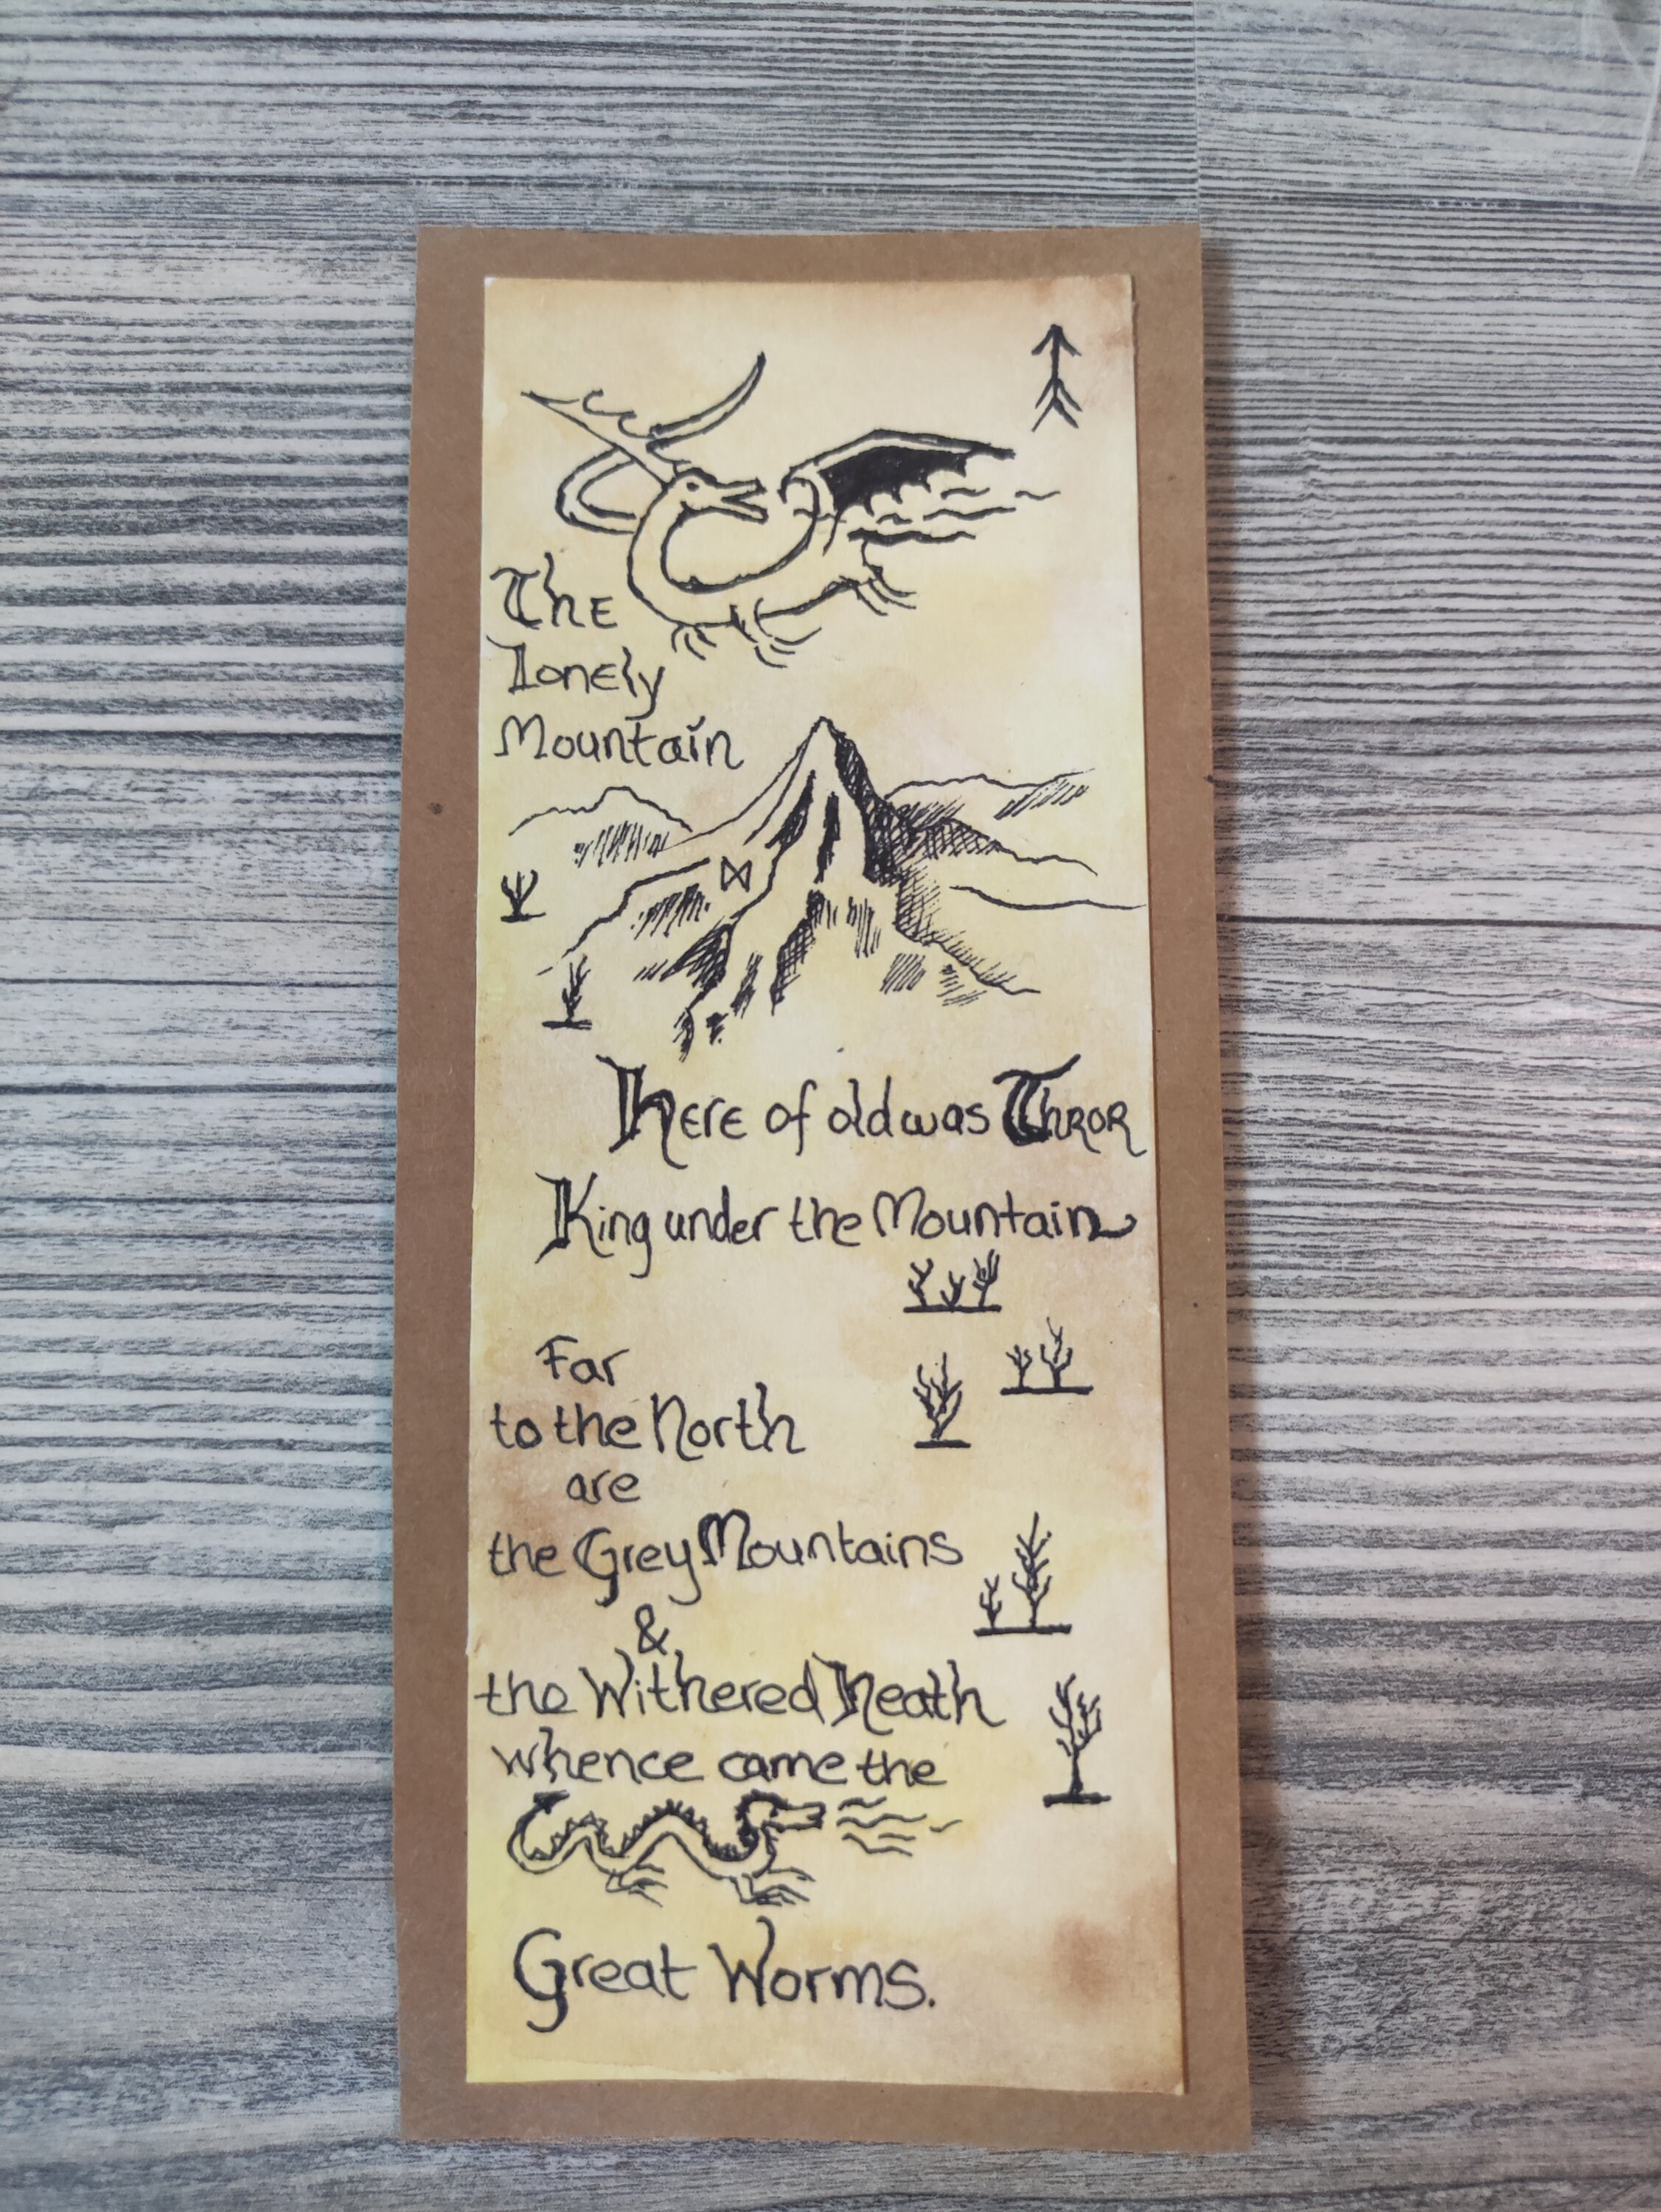 The
Lonely
Mountain
Here of old was Thror
King under the Mountain
Far
to the North
are
the Grey Mountains
&
the Withered Heath
whence came the
Great Worms.